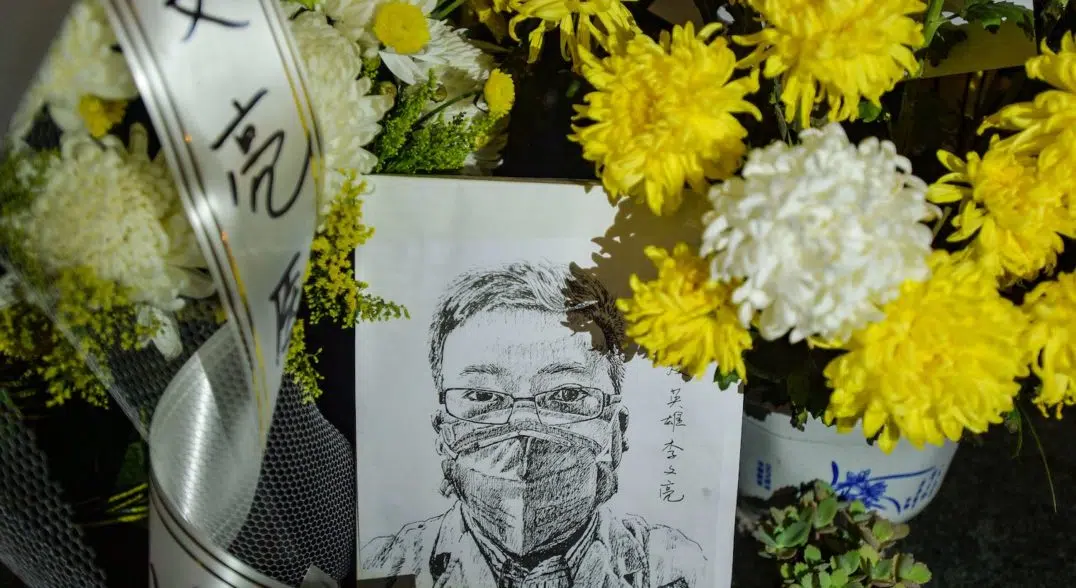 文亮医
英雄李文亮